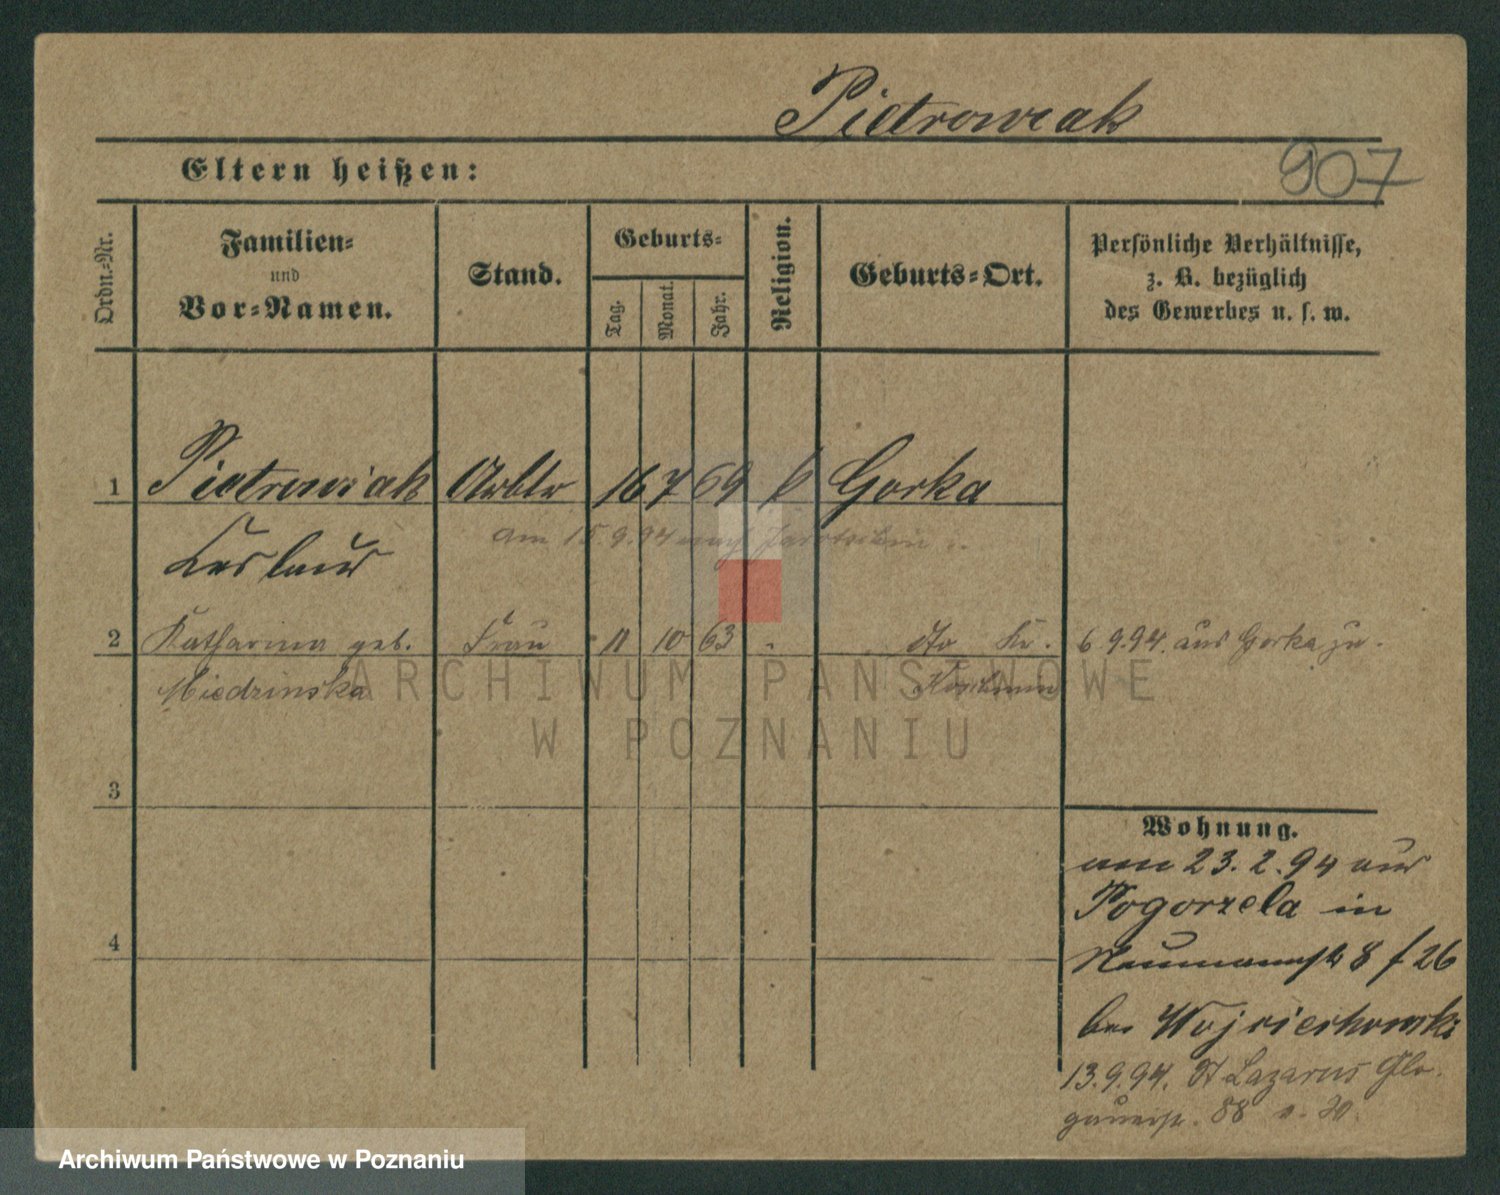 Pietrowiak
907
Eltern heißen:
Ordn.-Nr.
Familien-
und
Vor-Namen.
Stand.
Geburts-
Tag.
Monat.
Jahr.
Religion.
Geburts-Ort.
Persönliche Verhältnisse,
z. B. bezüglich
des Gewerbes u. s. w.
1 Pietrowiak Arbtr 16 7 69 k Gorka
am 15.9.94 nach
2 Katharina geb. Frau 11 10 63 Kr. 6 9.94. aus Gorka zu.
Miedzinska
ARCHIWUM PAŃSTWOWE
W POZNANIU
3
4
Wohnung.
am 23.2.94 aus
Pogorzela in
Neumannstr 8 f 26
bei Wojciechowski
13.9.94. St Lazarus Glo-
gauerstr. 88 v. 30.
Archiwum Państwowe w Poznaniu